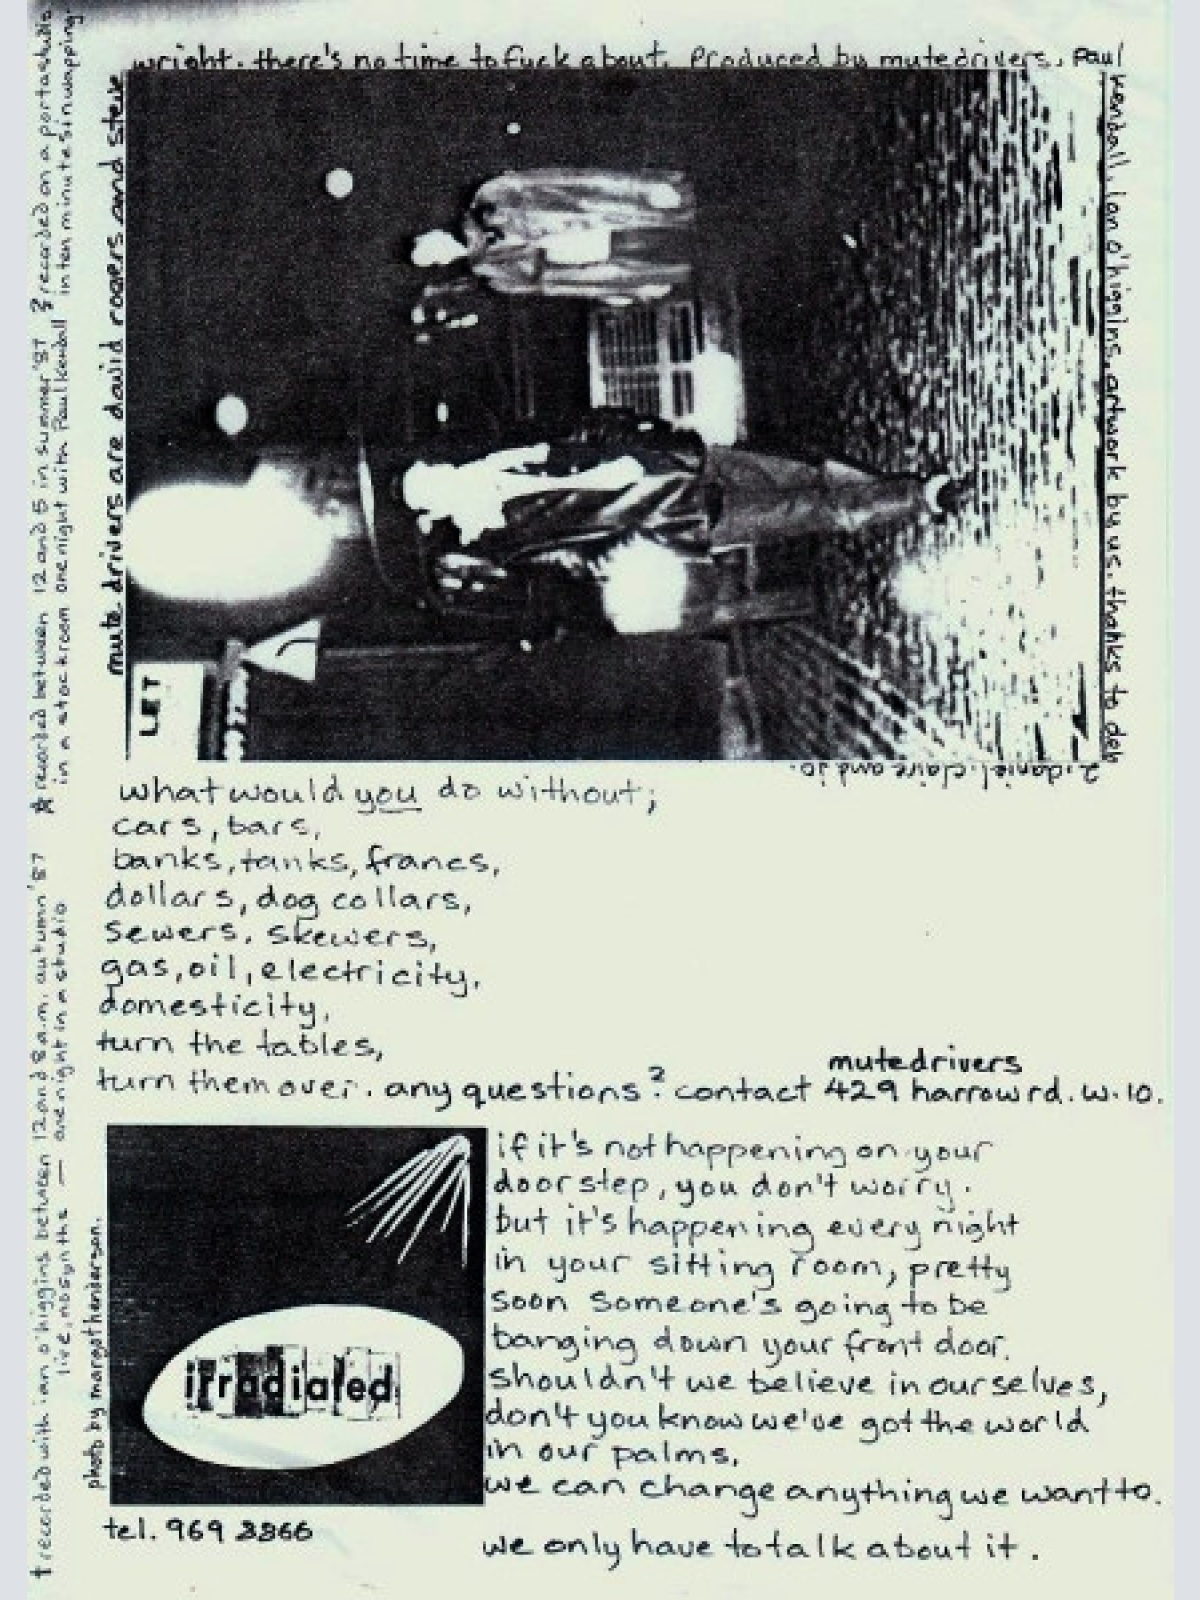 mute drivers are david rogers and steve
wright. there's no time to fuck about. Produced by mutedrivers, Paul
Kendall, Ian o'higgins. artwork by us. thanks to deb
2. daniel. claire and jo.
LET
what would you do without;
cars, bars,
banks, tanks, francs,
dollars, dog collars,
sewers, skewers,
gas, oil, electricity,
domesticity,
turn the tables,
turn them over. any questions? contact mutedrivers 429 harrow rd. w.10.
irradiated
if it's not happening on your
doorstep, you don't worry.
but it's happening every night
in your sitting room, pretty
soon someone's going to be
banging down your front door.
shouldn't we believe in ourselves,
don't you know we've got the world
in our palms,
we can change anything we want to.
we only have to talk about it.
photo by margot henderson.
tel. 969
† recorded with ian o'higgins between 12 and 8 a.m. autumn '87
live, no synths — one night in a studio
* recorded between 12 and 5 in summer '87
in a stockroom one night with Paul Kendall
recorded on a portastudio
in ten minutes in wapping.